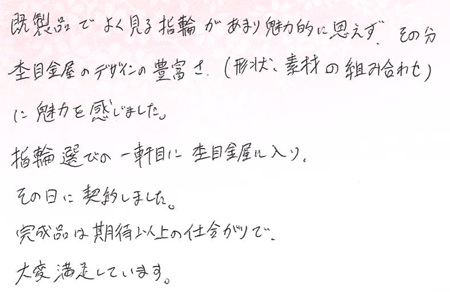 既製品でよく見る指輪があまり魅力的に思えず、その分
杢目金屋のデザインの豊富さ(形状、素材の組み合わせ)
に魅力を感じました。
指輪選びの一軒目に杢目金屋に入り、
その日に契約しました。
完成品は期待以上の仕上がりで、
大変満足しています。